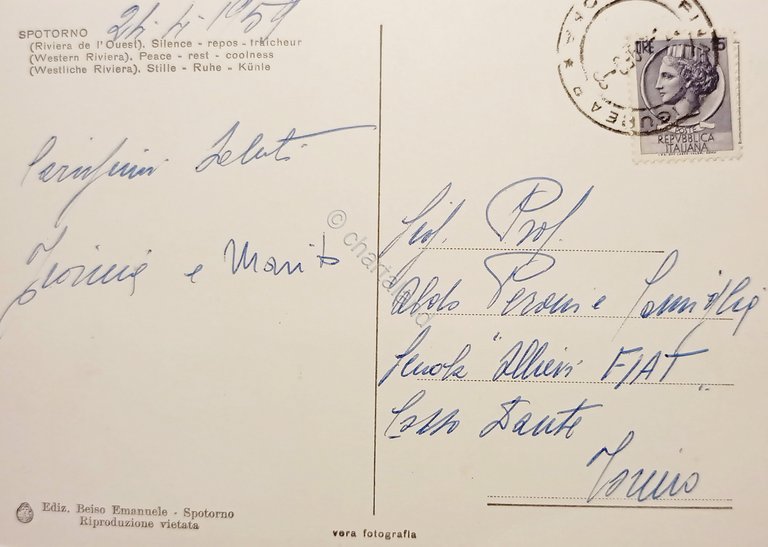 24-4-1959
SPOTORNO
(Riviera de l'Ouest). Silence - repos - fraîcheur
(Western Riviera). Peace - rest - coolness
(Westliche Riviera). Stille - Ruhe - Künle
LIRE 5
POSTE
REPVBBLICA
ITALIANA
Carissimi Saluti
e Marito
Prof.
Aldo Peroni e Famiglia
Scuola "Allievi FIAT"
Corso Dante
Torino
© chartaland
Ediz. Beiso Emanuele - Spotorno
Riproduzione vietata
vera fotografia